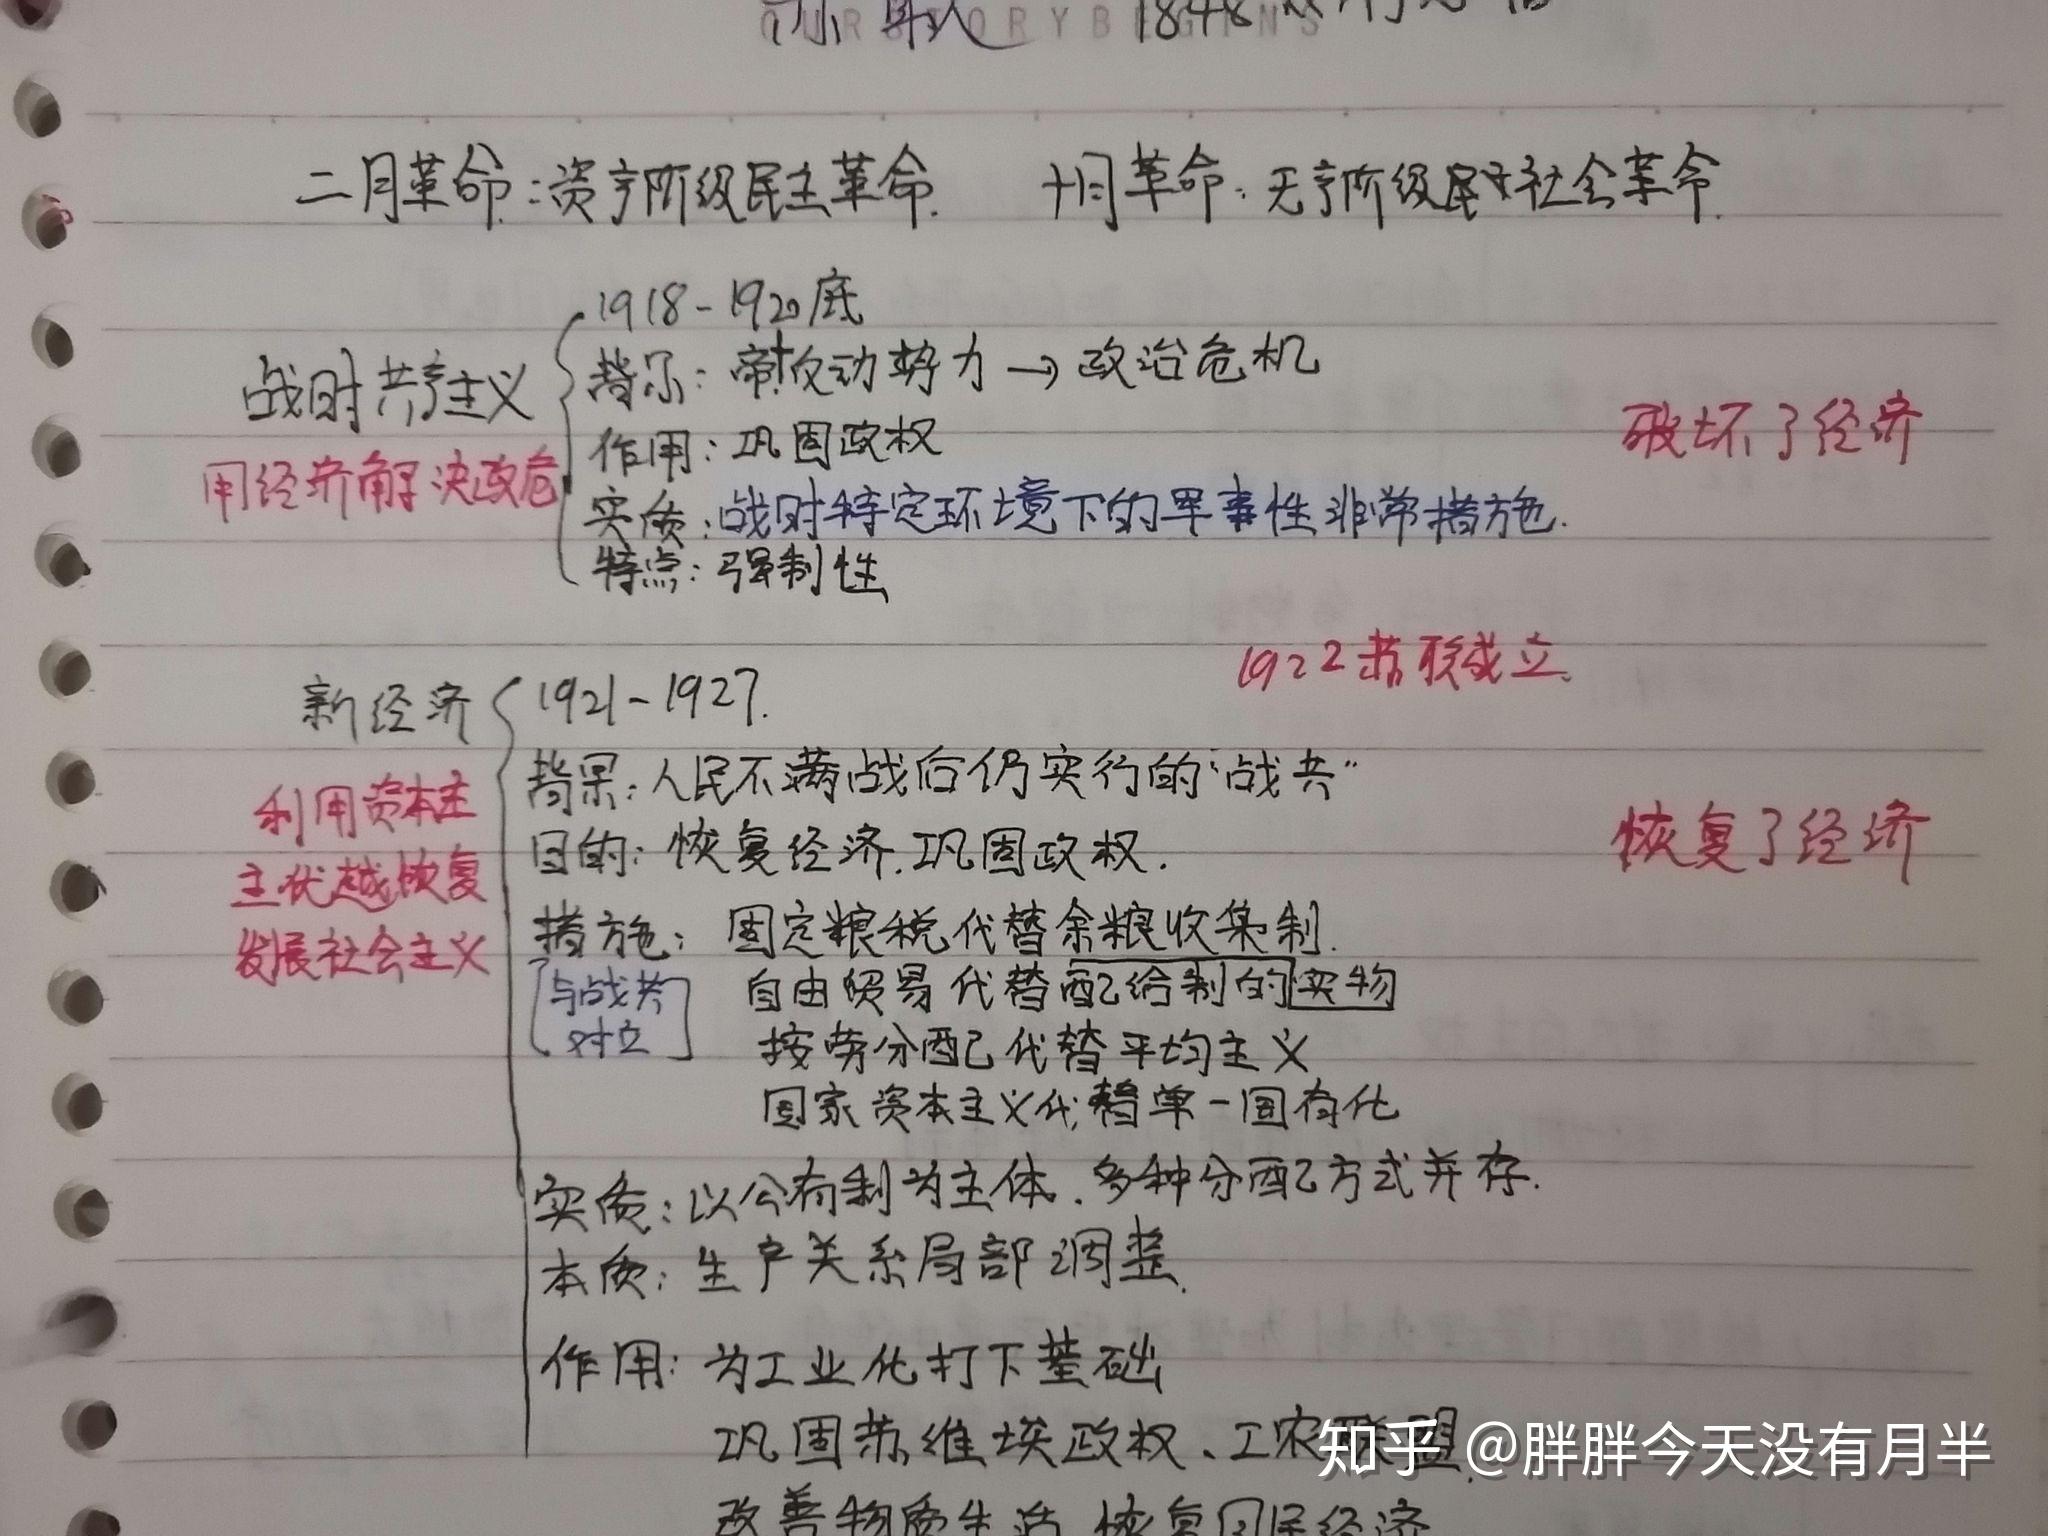 苏联 1848
OURSTORYBEGINS
二月革命：资产阶级民主革命. 十月革命：无产阶级社会革命.
1918-1920底
战时共产主义
背景：帝+反动势力→政治危机
作用：巩固政权
破坏了经济
用经济解决政危
实质：战时特定环境下的军事性非常措施.
特点：强制性
1922苏联成立.
新经济
1921-1927.
背景：人民不满战后仍实行的“战共”
利用资本主
目的：恢复经济.巩固政权.
恢复了经济
主优越恢复
措施：固定粮税代替余粮收集制.
发展社会主义
[与战共对立]
自由贸易代替配给制的实物
按劳分配代替平均主义
国家资本主义代替单一国有化
实质：以公有制为主体.多种分配方式并存.
本质：生产关系局部调整.
作用：为工业化打下基础
巩固苏维埃政权、工农联盟.
改善物质生活 恢复国民经济
知乎 @胖胖今天没有月半